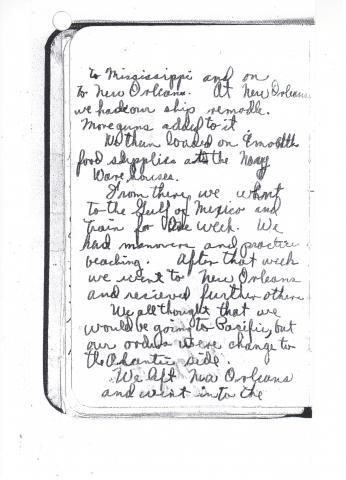 to Mississippi and on
to New Orleans. At New Orleans
we had our ship remodle.
More guns added to it
We than loaded on
food supplies at the Navy
Ware houses.
From there we went
to the Gulf of Mexico and
train for One week. We
had manover and practice
beaching. After that week
we went to New Orleans
and recieved further others
We all thought that we
would be going to Pacific, but
our orders were change to
the Atlantic side.
We left New Orleans
and went into the